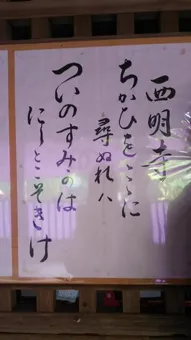 西明寺
ちかひをこゝに
尋ぬれハ
ついのすみかは
にしとこそきけ